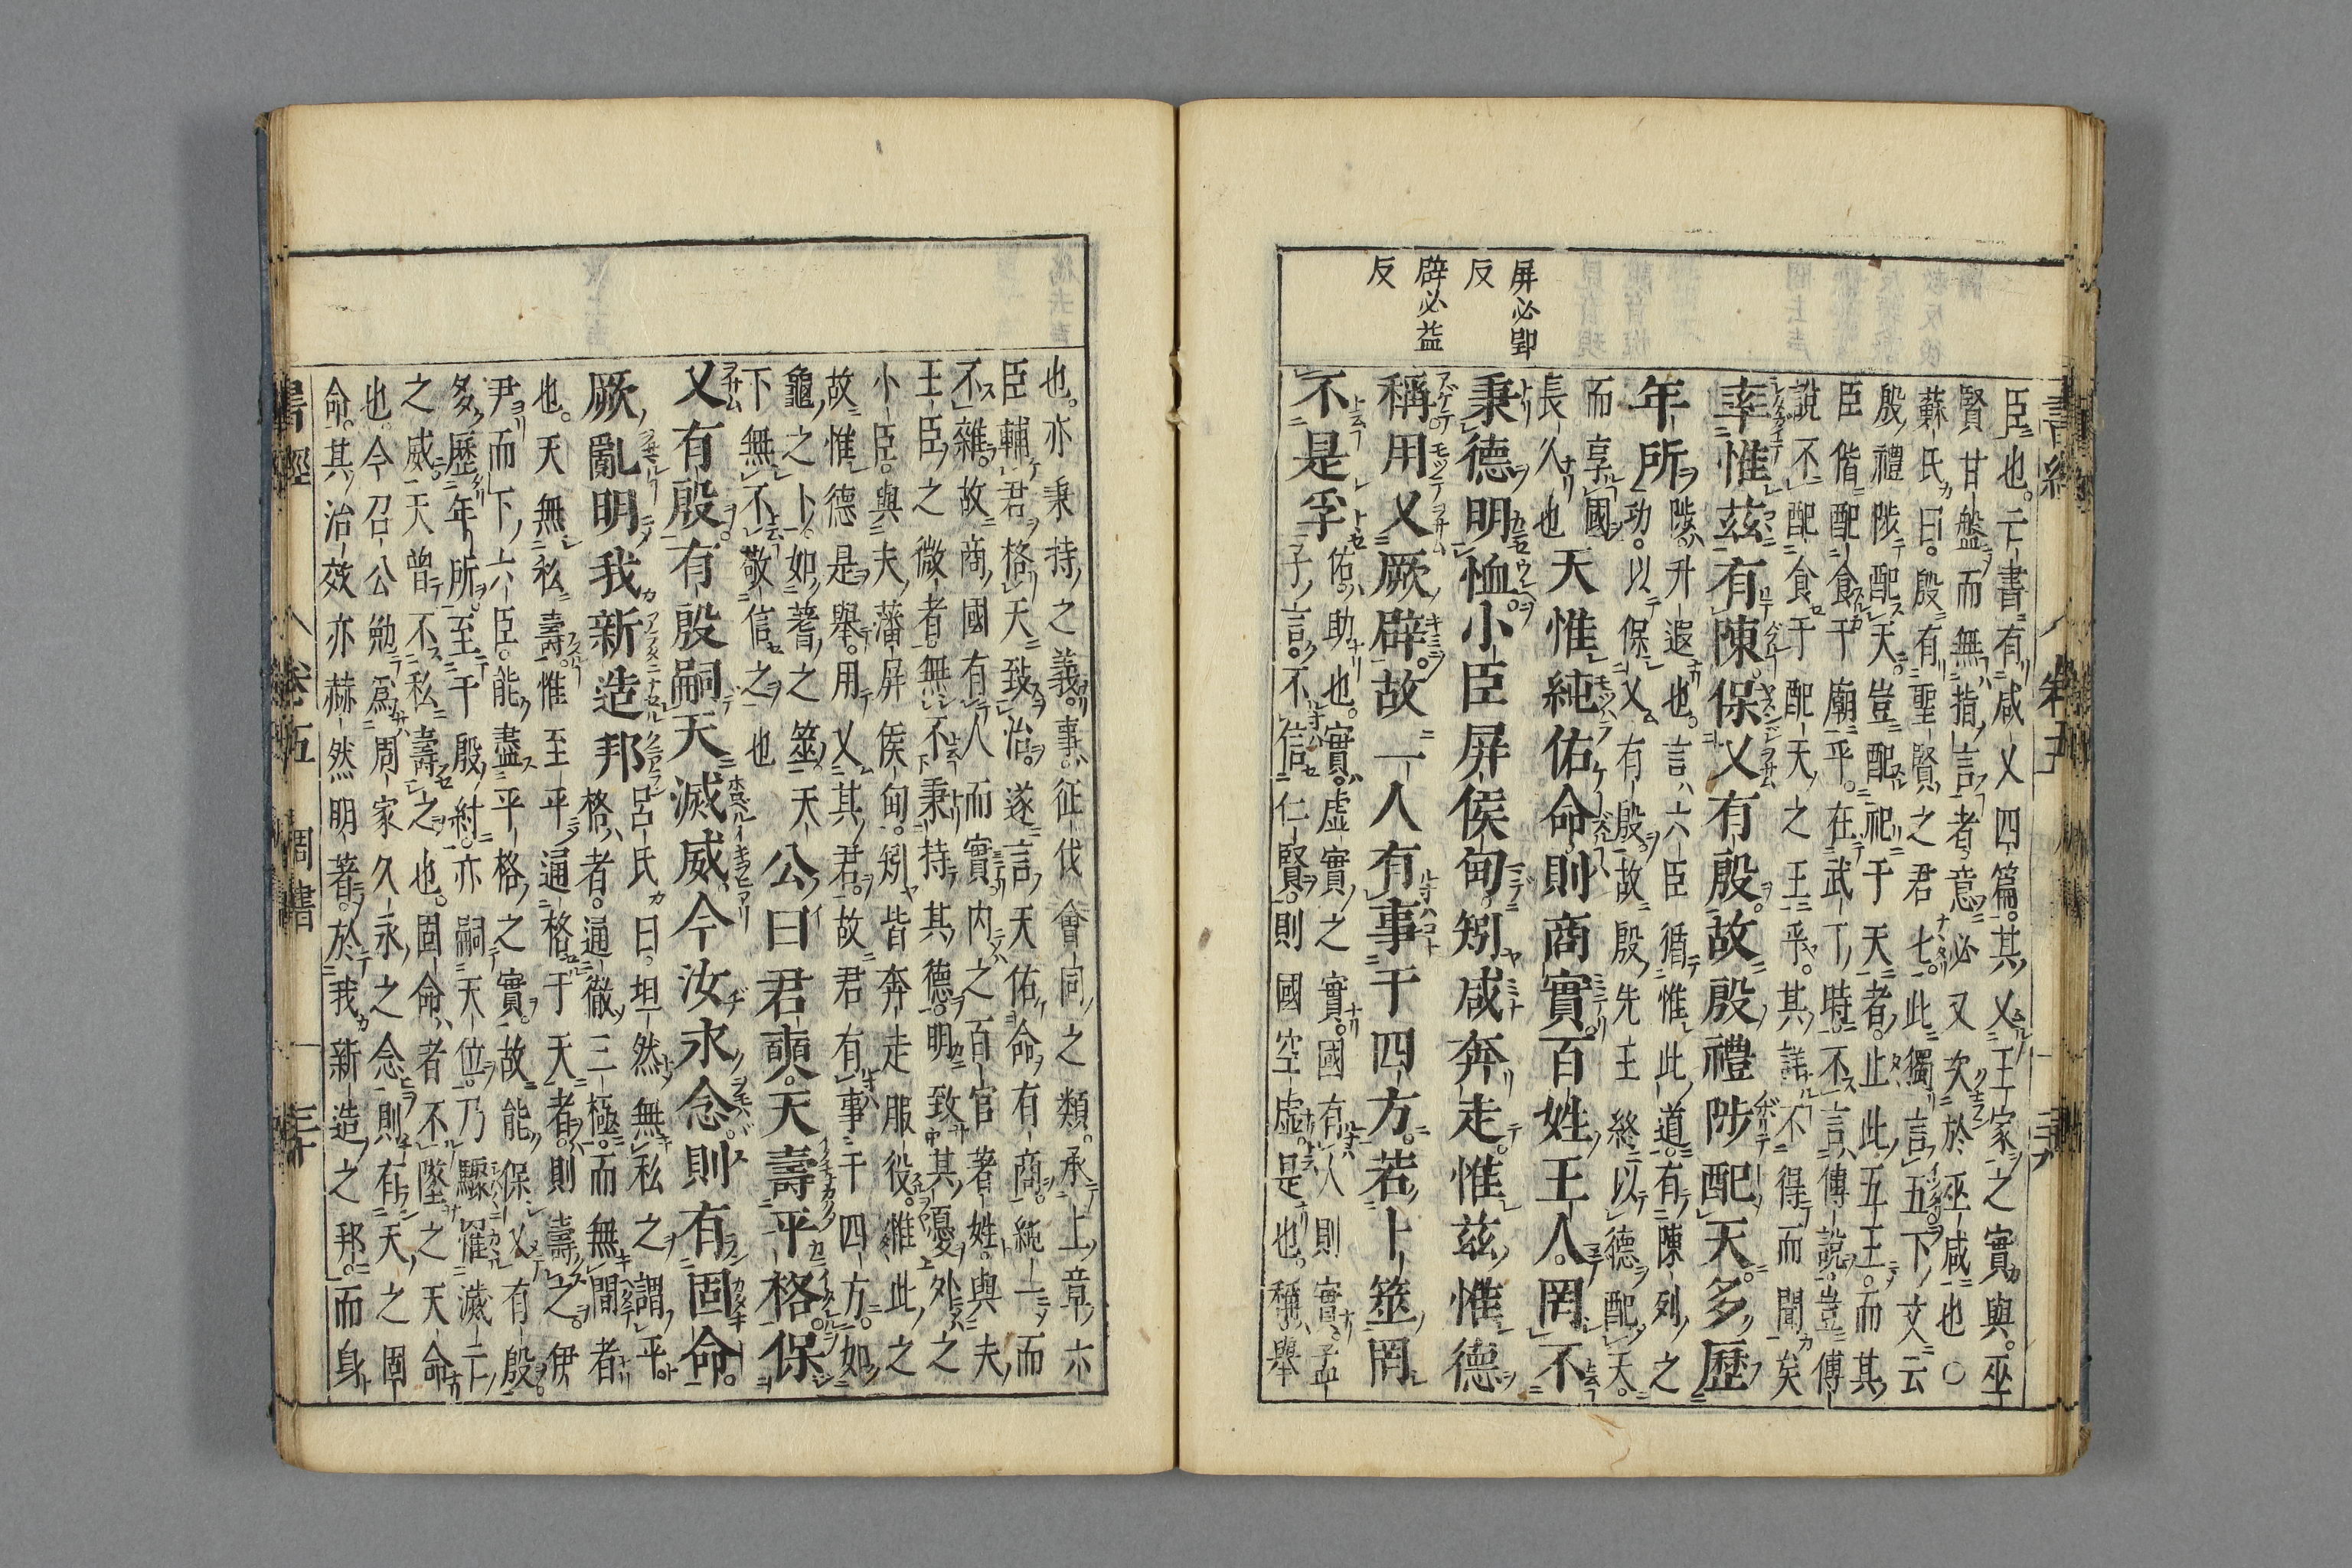 臣也亡書有咸乂四篇其乂王家之實與巫
賢甘盤而無指言者意必又次於巫咸也○
蘇氏曰殷有聖賢之君七此獨言五下文云
殷禮陟配天豈配祀于天者止此五王而其
臣偕配食于廟乎在武丁時不言傅說豈傅
說不配食于配天之王乎其詳不得而聞矣
率惟茲有陳保乂有殷故殷禮陟配天多歷
年所陟升遐也言六臣循惟此道有陳列之
功以保乂有殷故殷先王終以德配天
而享國
長久也天惟純佑命則商實百姓王人罔不
秉德明恤小臣屏侯甸矧咸奔走惟茲惟德
稱用乂厥辟故一人有事于四方若卜筮罔
不是孚佑助也實虛實之實國有人則實孟
子言不信仁賢則國空虛是也稱舉
屏必郢
反
辟必益
反
也亦秉持之義事征伐會同之類承上章六
臣輔君格天致治遂言天佑命有商純一而
不雜故商國有人而實內之百官著姓與夫
王臣之微者無不秉持其德明致其憂外之
小臣與夫藩屏侯甸矧皆奔走服役惟此之
故惟德是舉用乂其君故君有事于四方如
龜之卜如蓍之筮天
下無不敬信之也公曰君奭天壽平格保
乂有殷有殷嗣天滅威今汝永念則有固命
厥亂明我新造邦呂氏曰坦然無私之謂平
格者通徹三極而無間者
也天無私壽惟至平通格于天者則壽之伊
尹而下六臣能盡平格之實故能保乂有殷
多歷年所至于殷紂亦嗣天位乃驟罹滅亡
之威天曾不私壽之也固命者不墜之天命
也今召公勉爲周家久永之念則有天之固
命其治效亦赫然明著於我新造之邦而身
書經 卷五 周書 三十